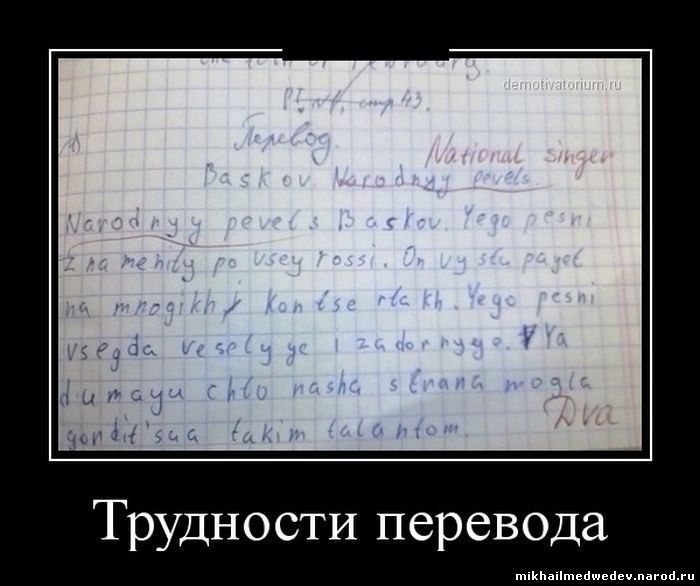 the 10th of February.
demotivatorium.ru
стр 43.
Перевод.
National singer
Baskov. Narodnyy pevets.
Narodnyy pevets Baskov. Yego pesni
znamenity po vsey rossi. On vystupayet
na mnogikh kontsertakh. Yego pesni
vsegda veselyye i zadornyye. Ya
dumayu chto nasha strana mogla
gordit'sua takim talantom.
Dva
Трудности перевода
mikhailmedwedev.narod.ru